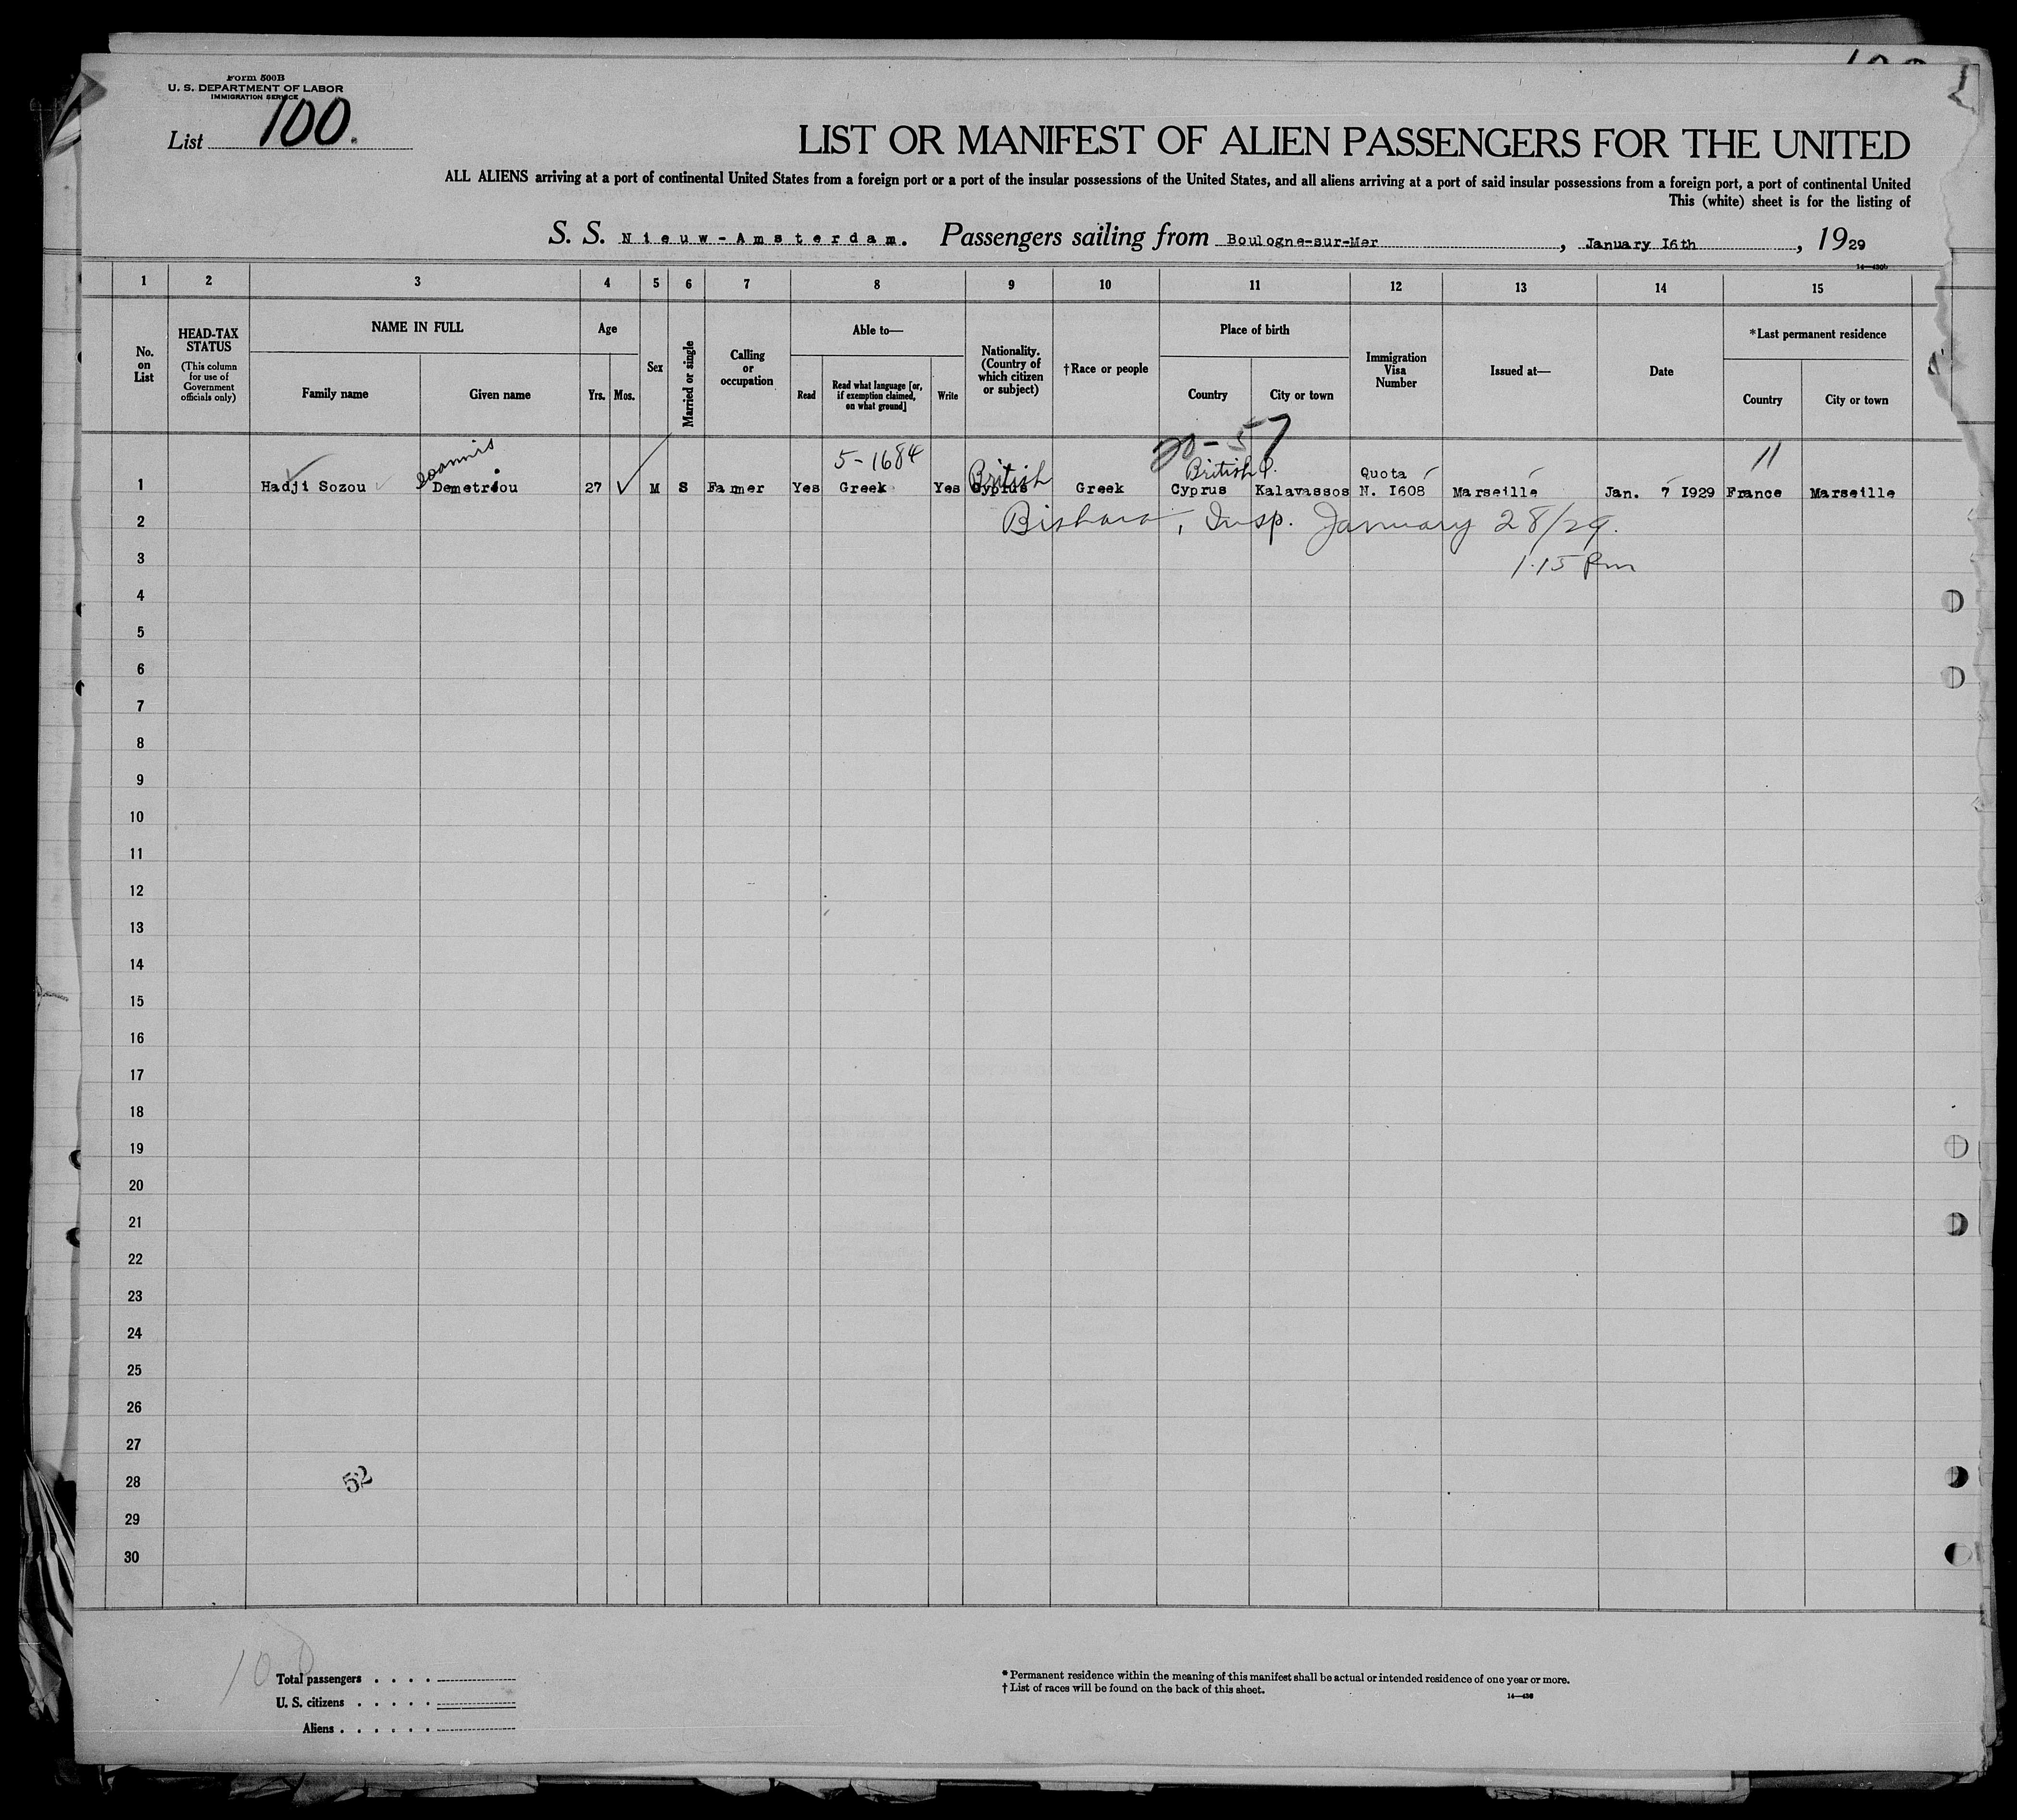 Form 500B
U. S. DEPARTMENT OF LABOR
IMMIGRATION SERVICE
List 100.
LIST OR MANIFEST OF ALIEN PASSENGERS FOR THE UNITED
ALL ALIENS arriving at a port of continental United States from a foreign port or a port of the insular possessions of the United States, and all aliens arriving at a port of said insular possessions from a foreign port, a port of continental United
This (white) sheet is for the listing of
S. S. Nieuw-Amsterdam. Passengers sailing from Boulogne-sur-Mer, January I6th, 1929
14—430b
1 2 3 4 5 6 7 8 9 10 11 12 13 14 15
No. on List
HEAD-TAX STATUS
(This column for use of Government officials only)
NAME IN FULL
Family name Given name
Age
Yrs. Mos.
Sex
Married or single
Calling or occupation
Able to—
Read
Read what language [or, if exemption claimed, on what ground]
Write
Nationality. (Country of which citizen or subject)
†Race or people
Place of birth
Country City or town
Immigration Visa Number
Issued at—
Date
*Last permanent residence
Country City or town
20-57
Ioannis 5-1684 British British Quota 11
1 Hadji Sozou Demetriou 27 M S Farmer Yes Greek Yes Cyprus Greek Cyprus Kalavassos N. I608 Marseille Jan. 7 I929 France Marseille
2 Bishara, Insp. January 28/29.
3 1.15 Pm
4
5
6
7
8
9
10
11
12
13
14
15
16
17
18
19
20
21
22
23
24
25
26
27
28 52
29
30
100
Total passengers . . . .
U. S. citizens . . . . .
Aliens . . . . . .
* Permanent residence within the meaning of this manifest shall be actual or intended residence of one year or more.
† List of races will be found on the back of this sheet.
14—430